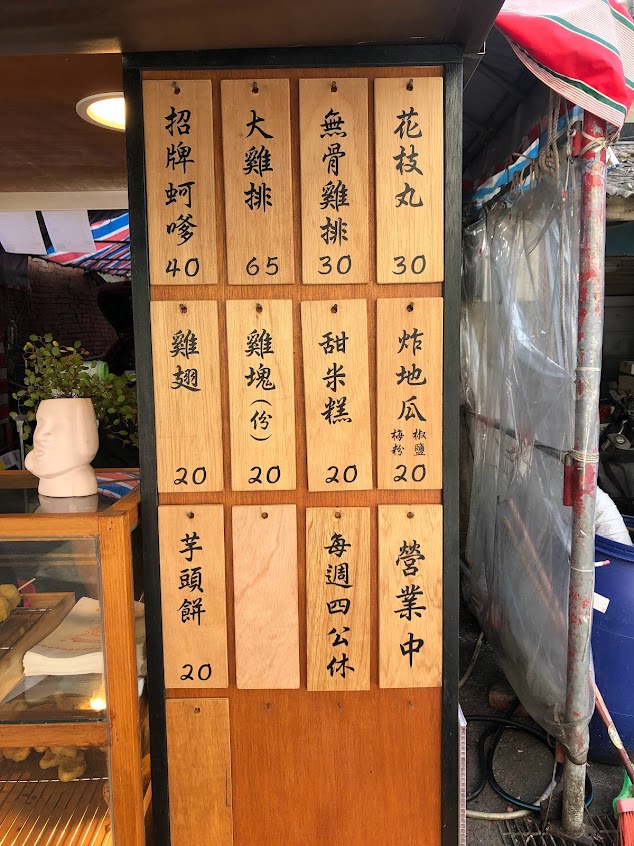 招牌蚵嗲
40
大雞排
65
無骨雞排
30
花枝丸
30
雞翅
20
雞塊(份)
20
甜米糕
20
炸地瓜
椒鹽
梅粉
20
芋頭餅
20
每週四公休
營業中